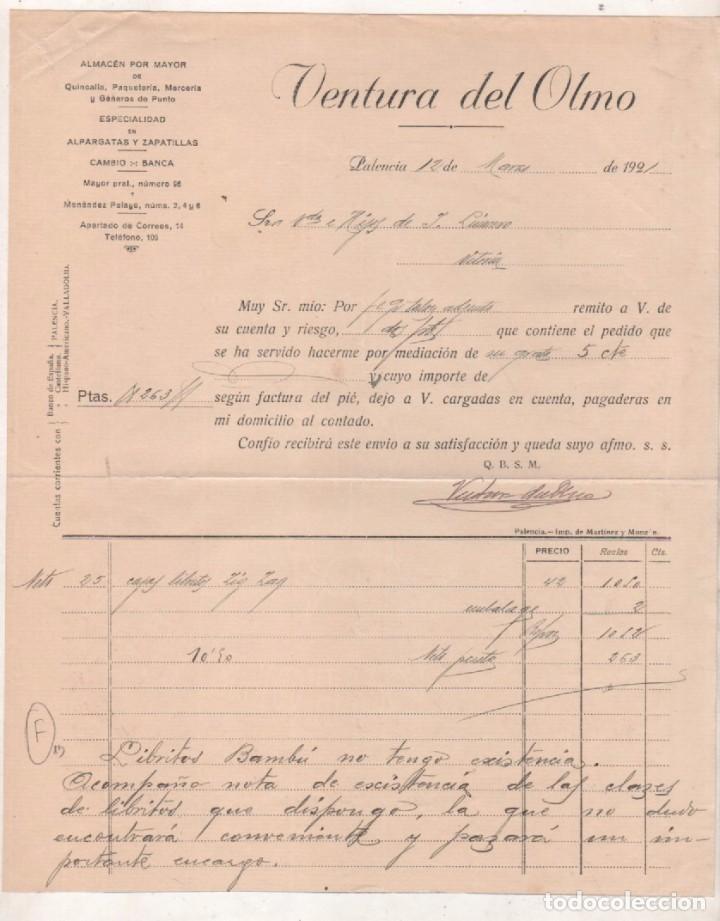 ALMACÉN POR MAYOR
DE
Quincalla, Paquetería, Mercería
y Géneros de Punto
ESPECIALIDAD
EN
ALPARGATAS Y ZAPATILLAS
CAMBIO :-: BANCA
Mayor pral., número 96
Y
Menéndez Pelayo, núms. 2, 4 y 6
Apartado de Correos, 14
Teléfono, 109
Ventura del Olmo
Palencia 12 de Marzo de 1921
Sra Vda e Hijos de J.
Vitoria
Muy Sr. mio: Por talon adjunto remito a V. de
su cuenta y riesgo, que contiene el pedido que
se ha servido hacerme por mediación de su grata 5 cte
y cuyo importe de
Ptas. 263 según factura del pié, dejo a V. cargadas en cuenta, pagaderas en
mi domicilio al contado.
Confío recibirá este envio a su satisfacción y queda suyo afmo. s. s.
Q. B. S. M.
Cuentas corrientes con
Banco de España.
Castellano.
PALENCIA.
Hispano-Americano.-VALLADOLID.
Palencia.—Imp. de Martínez y
PRECIO Reales Cts.
25 cajas libritos Zig Zag 42 1050
embalage 2
1052
10'50 Neto pesetas 263
F
Libritos Bambú no tengo existencia.
Acompaño nota de existencia de las clases
de libritos que dispongo, la que no dudo
encontrará conveniente y pasará un im-
portante encargo.
todocoleccion
todocoleccion.net